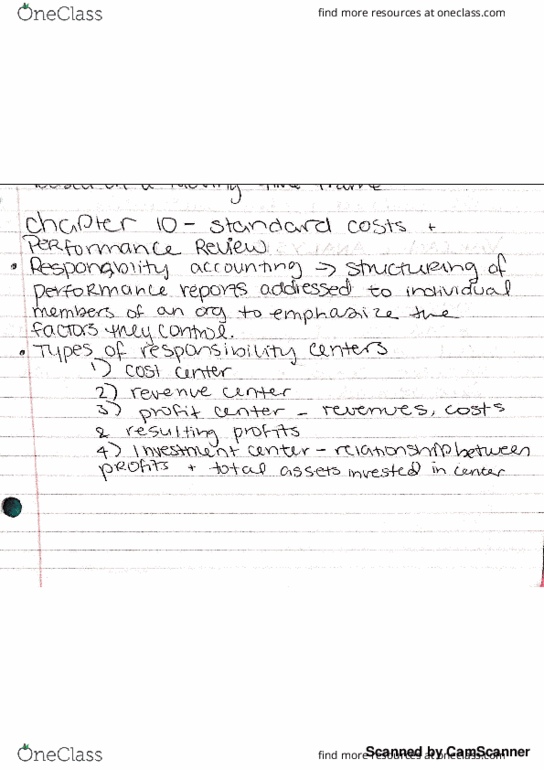 OneClass
find more resources at oneclass.com
based on a moving time frame
Chapter 10 - standard costs +
Performance Review
• Responsibility accounting → structuring of
performance reports addressed to individual
members of an org to emphasize the
factors they control.
• Types of responsibility centers
1) cost center
2) revenue center
3) profit center - revenues, costs
& resulting profits
4) Investment center - relationship between
profits + total assets invested in center
OneClass
find more resources at oneclass.com
Scanned by CamScanner